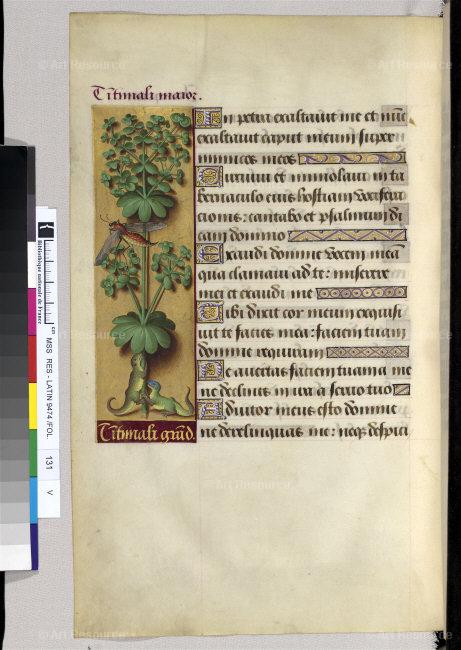 Titimali maior.
In petra exaltavit me et nūc
exaltavit caput meum super
inimicos meos
Circuivi et immolavi in ta
bernaculo eius hostiam vocifera
cionis: cantabo et psalmum di
cam domino
Exaudi domine vocem meā
qua clamavi ad te: miserere
mei et exaudi me
Tibi dixit cor meum exquisi
vit te facies mea: faciem tuam
domine requiram
Ne avertas faciem tuam a me
ne declines in ira a servo tuo
Adiutor meus esto domine
ne derelinquas me: neq; despici
Titimali grād.
Bibliothèque nationale de France
cm
MSS RES - LATIN 9474 /FOL
131 V
© Art Resource